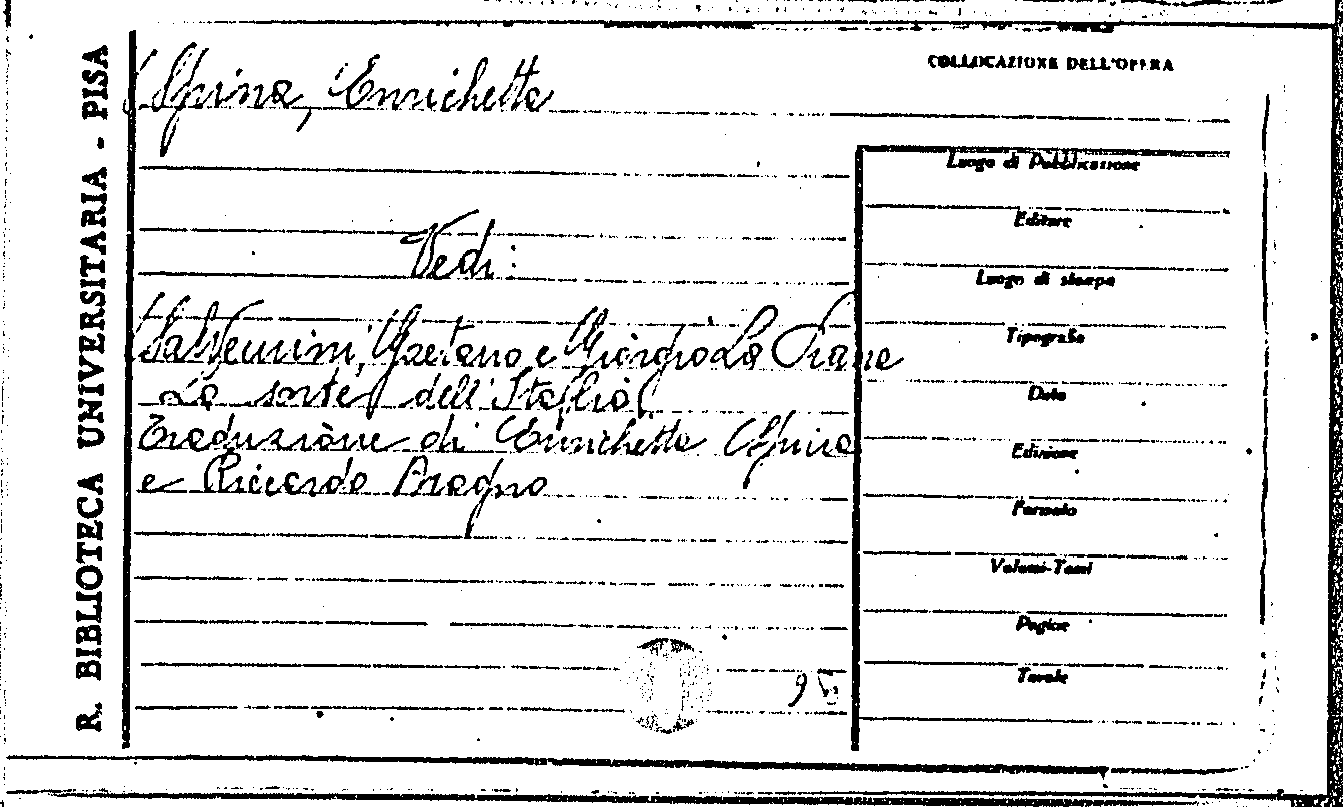 R. BIBLIOTECA UNIVERSITARIA - PISA
COLLOCAZIONE DELL'OPERA
Spina, Enrichetta
Vedi:
Salvemini, Gaetano e Giorgio La Piana
La sorte dell'Italia
Traduzione di Enrichetta Spina
e Riccardo Aragno
Luogo di Pubblicazione
Editore
Luogo di stampa
Tipografia
Data
Edizione
Formato
Volumi-Tomi
Pagine
Tavole